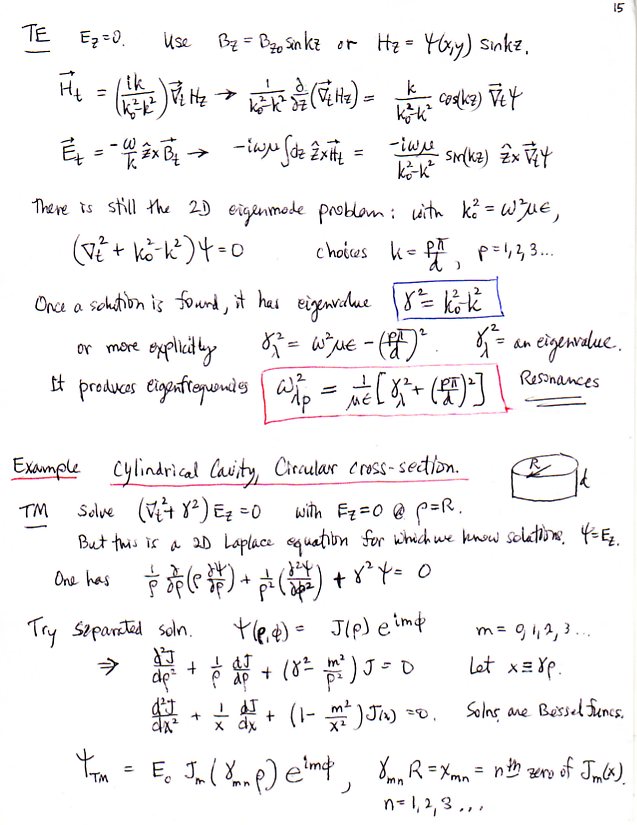 15
TE E_z=0. Use B_z = B_z0 sin kz or H_z = ψ(x,y) sin kz.
H⃗_t = (ik/(k_0²-k²)) ∇⃗_t H_z → 1/(k_0²-k²) ∂/∂z (∇⃗_t H_z) = k/(k_0²-k²) cos(kz) ∇⃗_t ψ
E⃗_t = -ω/k ẑ×B⃗_t → -iωμ∫dz ẑ×H⃗_t = -iωμ/(k_0²-k²) sin(kz) ẑ×∇⃗_t ψ
There is still the 2D eigenmode problem: with k_0² = ω²μϵ,
(∇_t² + k_0²-k²) ψ = 0 choices k = pπ/d, p = 1,2,3...
Once a solution is found, it has eigenvalue γ² = k_0²-k²
or more explicitly γ_λ² = ω²μϵ - (pπ/d)². γ_λ² = an eigenvalue.
It produces eigenfrequencies ω²_λp = 1/μϵ [γ_λ² + (pπ/d)²] Resonances
Example Cylindrical Cavity, Circular cross-section. R d
TM Solve (∇_t² + γ²) E_z = 0 with E_z = 0 @ ρ=R.
But this is a 2D Laplace equation for which we know solutions. ψ=E_z.
One has 1/ρ ∂/∂ρ (ρ ∂ψ/∂ρ) + 1/ρ² (∂²ψ/∂φ²) + γ²ψ = 0
Try separated soln. ψ(ρ,φ) = J(ρ) e^{imφ} m = 0,1,2,3...
⇒ d²J/dρ² + 1/ρ dJ/dρ + (γ² - m²/ρ²) J = 0 Let x ≡ γρ.
d²J/dx² + 1/x dJ/dx + (1 - m²/x²) J(x) = 0. Solns. are Bessel funcs.
ψ_TM = E_0 J_m(γ_mn ρ) e^{imφ}, γ_mn R = x_mn = nth zero of J_m(x).
n = 1,2,3...